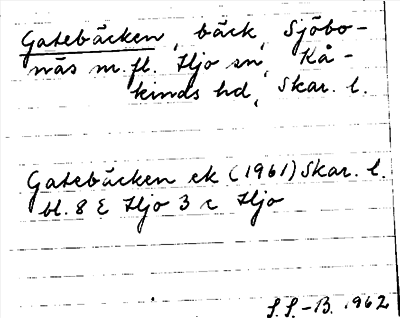 Gatebäcken, bäck, Sjöbo-
näs m.fl. Hjo sn, Kå-
kinds hd, Skar. l.
Gatebäcken ek (1961) Skar. l.
bl. 8 E Hjo 3 c Hjo
S.S.-B. 1962